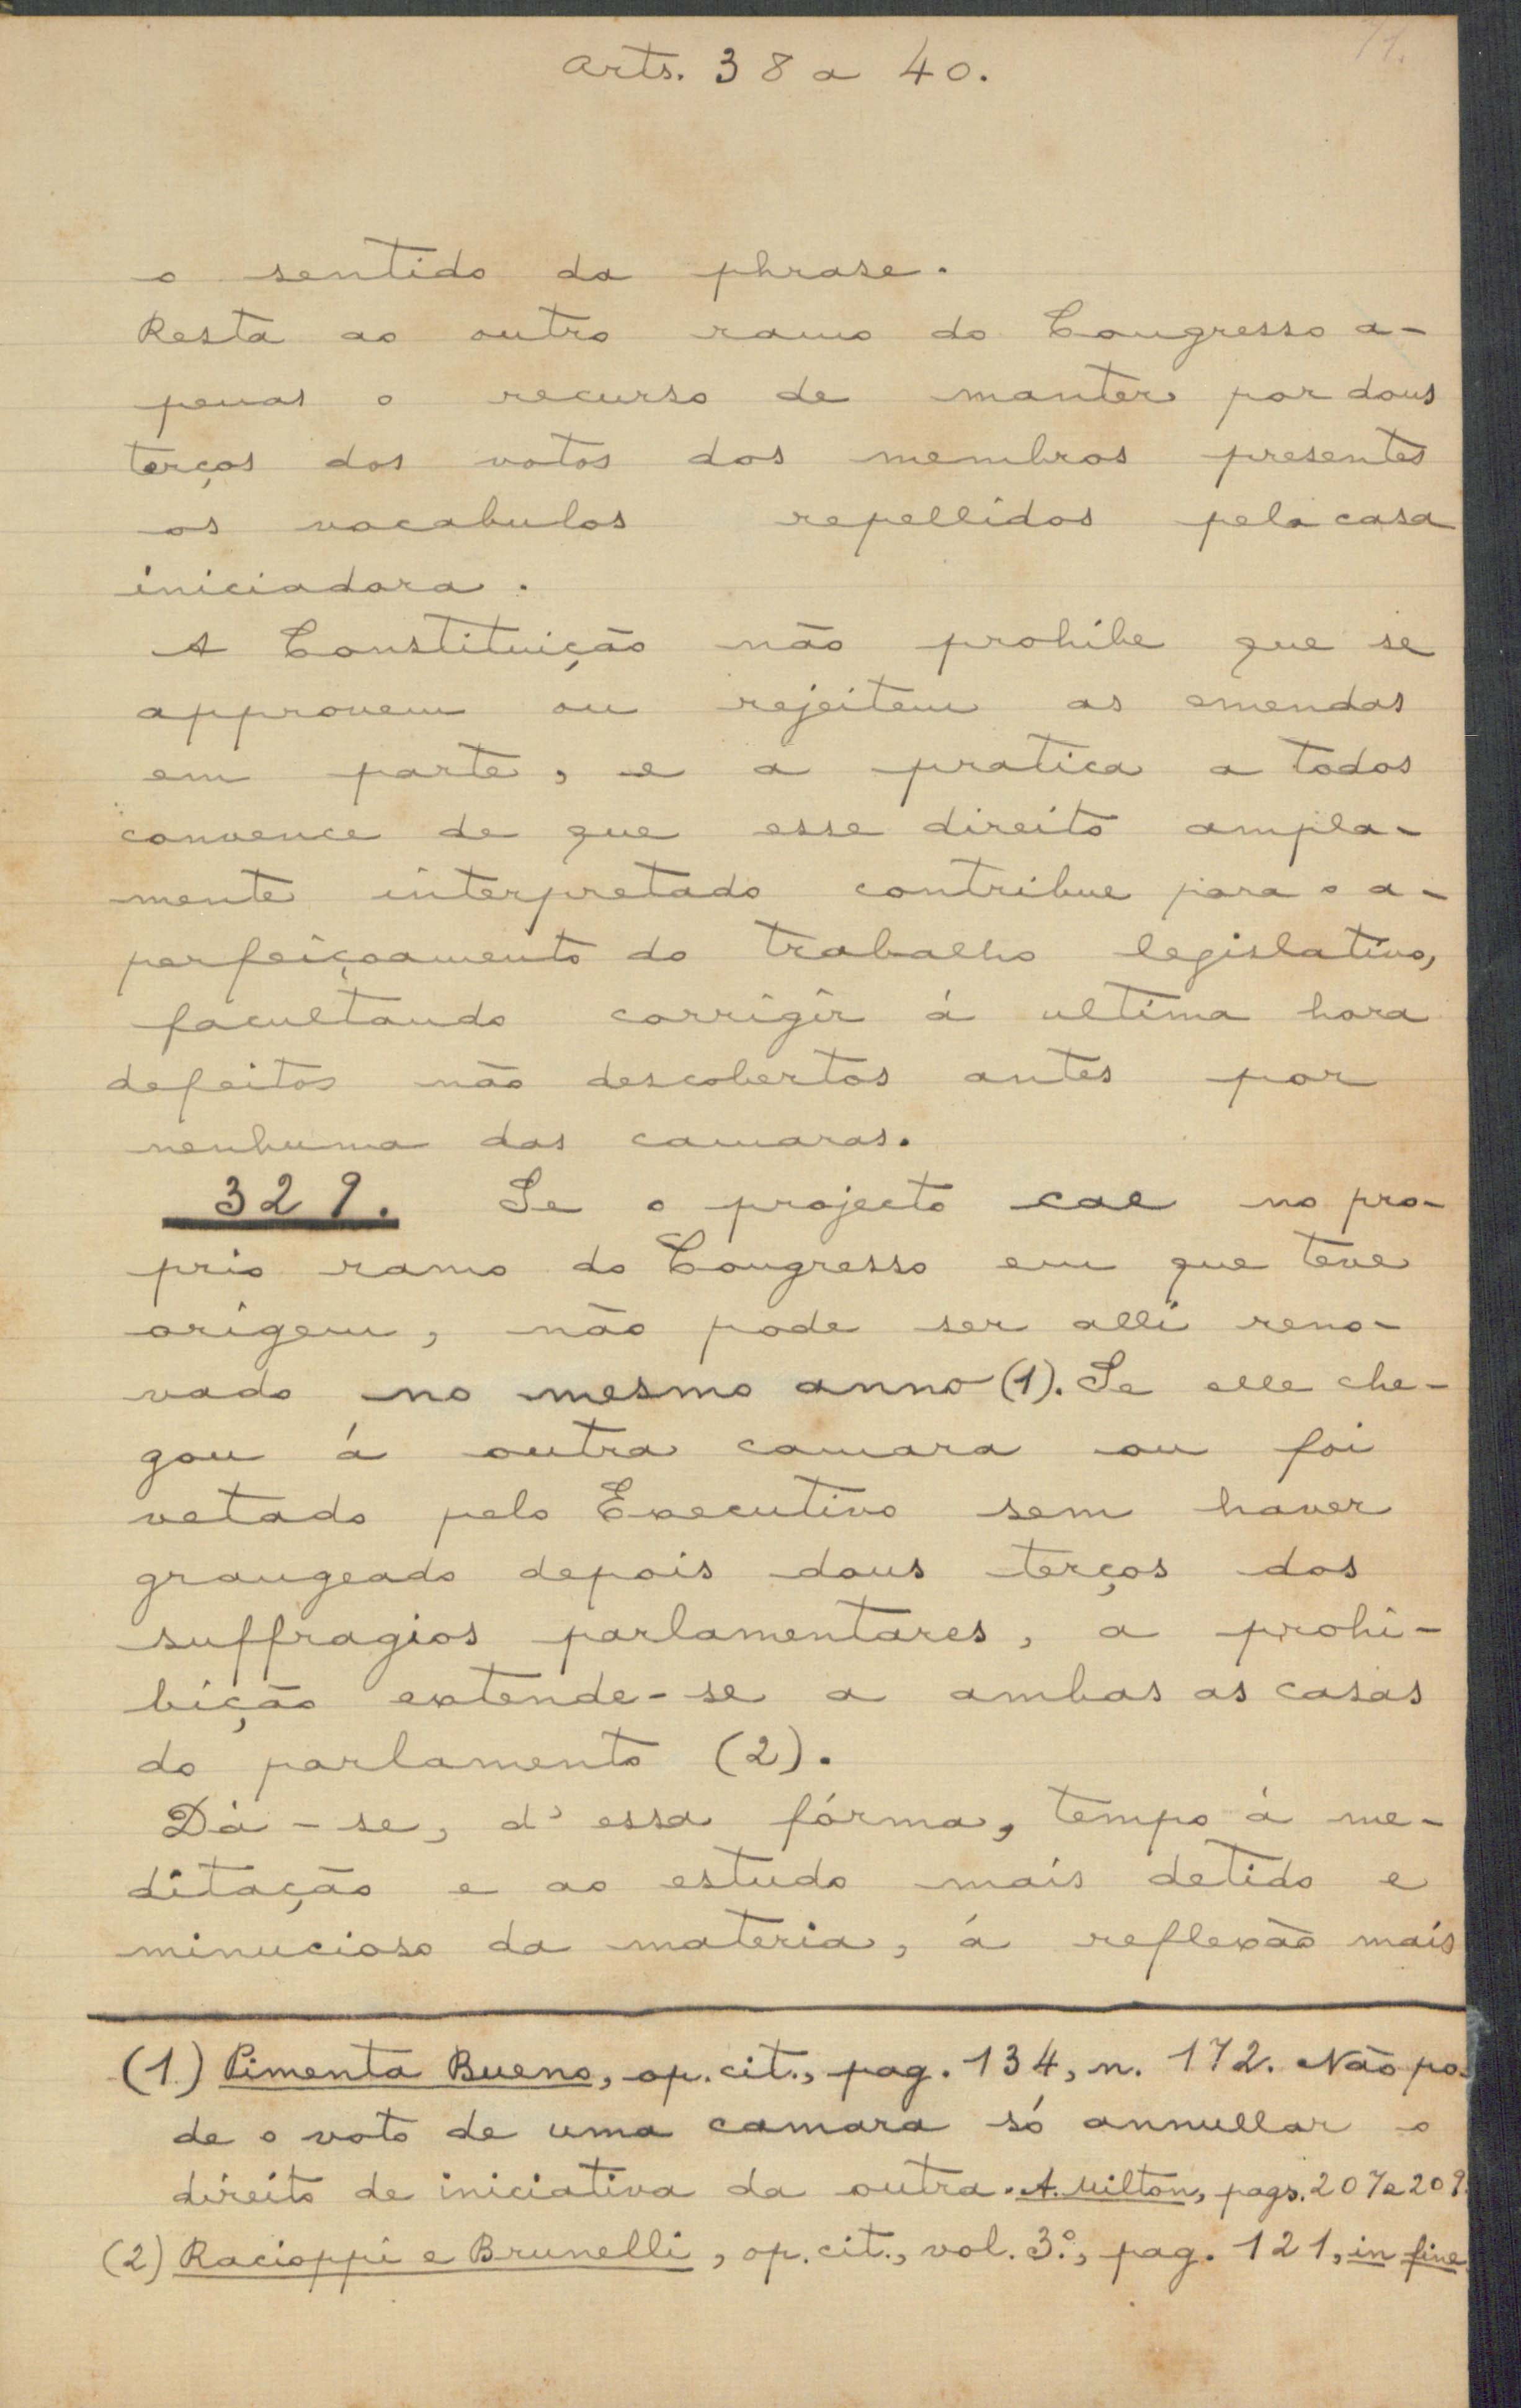 Arts. 38 a 40.
o sentido da phrase.
Resta ao outro ramo do Congresso a-
penas o recurso de manter por dous
terços dos votos dos membros presentes
os vocabulos repellidos pela casa
iniciadora.
A Constituição não prohibe que se
approvem ou rejeitem as emendas
em parte, e a pratica a todos
convence de que esse direito ampla-
mente interpretado contribue para o a-
perfeiçoamento do trabalho legislativo,
facultando corrigir á ultima hora
defeitos não descobertos antes por
nenhuma das camaras.
329. Se o projecto cae no pro-
prio ramo do Congresso em que teve
origem, não pode ser alli reno-
vado no mesmo anno (1). Se elle che-
gou á outra camara ou foi
vetado pelo Executivo sem haver
grangeado depois dous terços dos
suffragios parlamentares, a prohi-
bição extende-se a ambas as casas
do parlamento (2).
Dá-se, d'essa fórma, tempo á me-
ditação e ao estudo mais detido e
minucioso da materia, á reflexão mais
(1) Pimenta Bueno, op. cit., pag. 134, n. 172. Não po-
de o voto de uma camara só annullar o
direito de iniciativa da outra. A. Milton, pags. 207 e 209.
(2) Racioppi e Brunelli, op. cit., vol. 3º, pag. 121, in fine